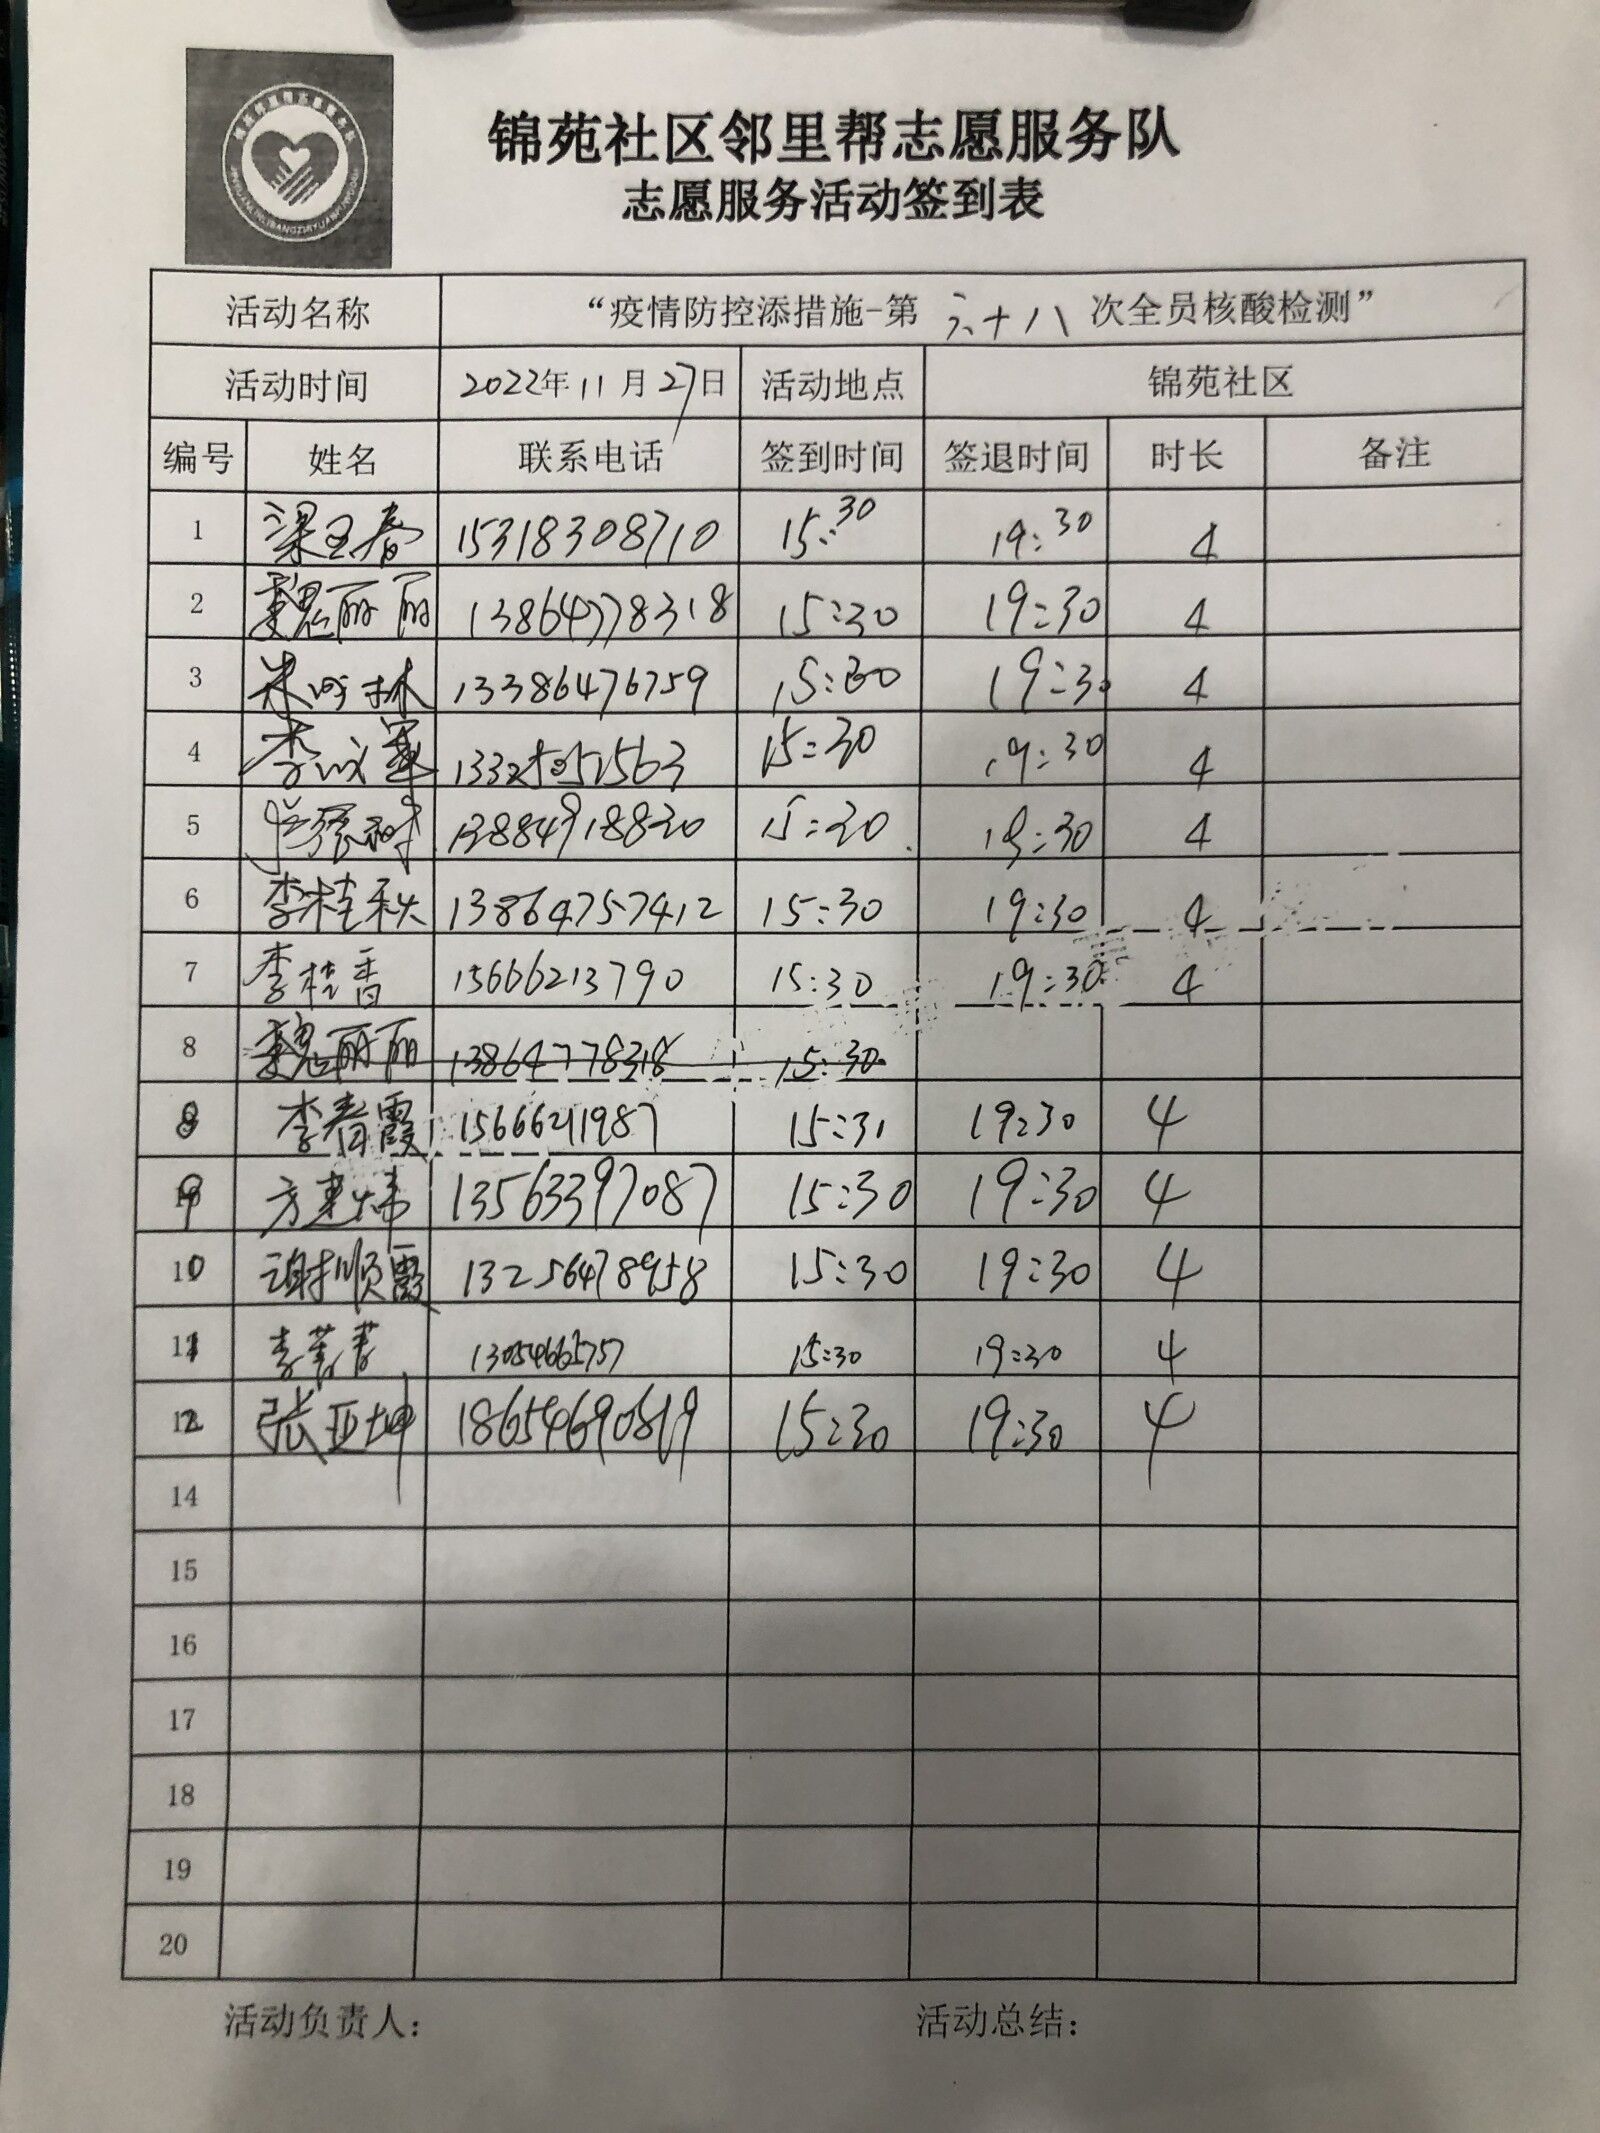 锦苑社区邻里帮志愿服务队
志愿服务活动签到表
活动名称 “疫情防控添措施-第六十八次全员核酸检测”
活动时间 2022年11月27日 活动地点 锦苑社区
编号 姓名 联系电话 签到时间 签退时间 时长 备注
1 梁玉春 15318308710 15:30 19:30 4
2 魏丽丽 13864778318 15:30 19:30 4
3 13386476759 15:30 19:30 4
4 李 15:30 19:30 4
5 15:30 19:30 4
6 李桂秋 13864757412 15:30 19:30 4
7 李桂香 15666213790 15:30 19:30 4
8 魏丽丽 13864778318 15:30
8 李春霞 15666211987 15:31 19:30 4
9 方建炜 13563397087 15:30 19:30 4
10 谢顺霞 13256478958 15:30 19:30 4
11 李 13054665757 15:30 19:30 4
12 张亚坤 18654690819 15:30 19:30 4
14
15
16
17
18
19
20
活动负责人： 活动总结：